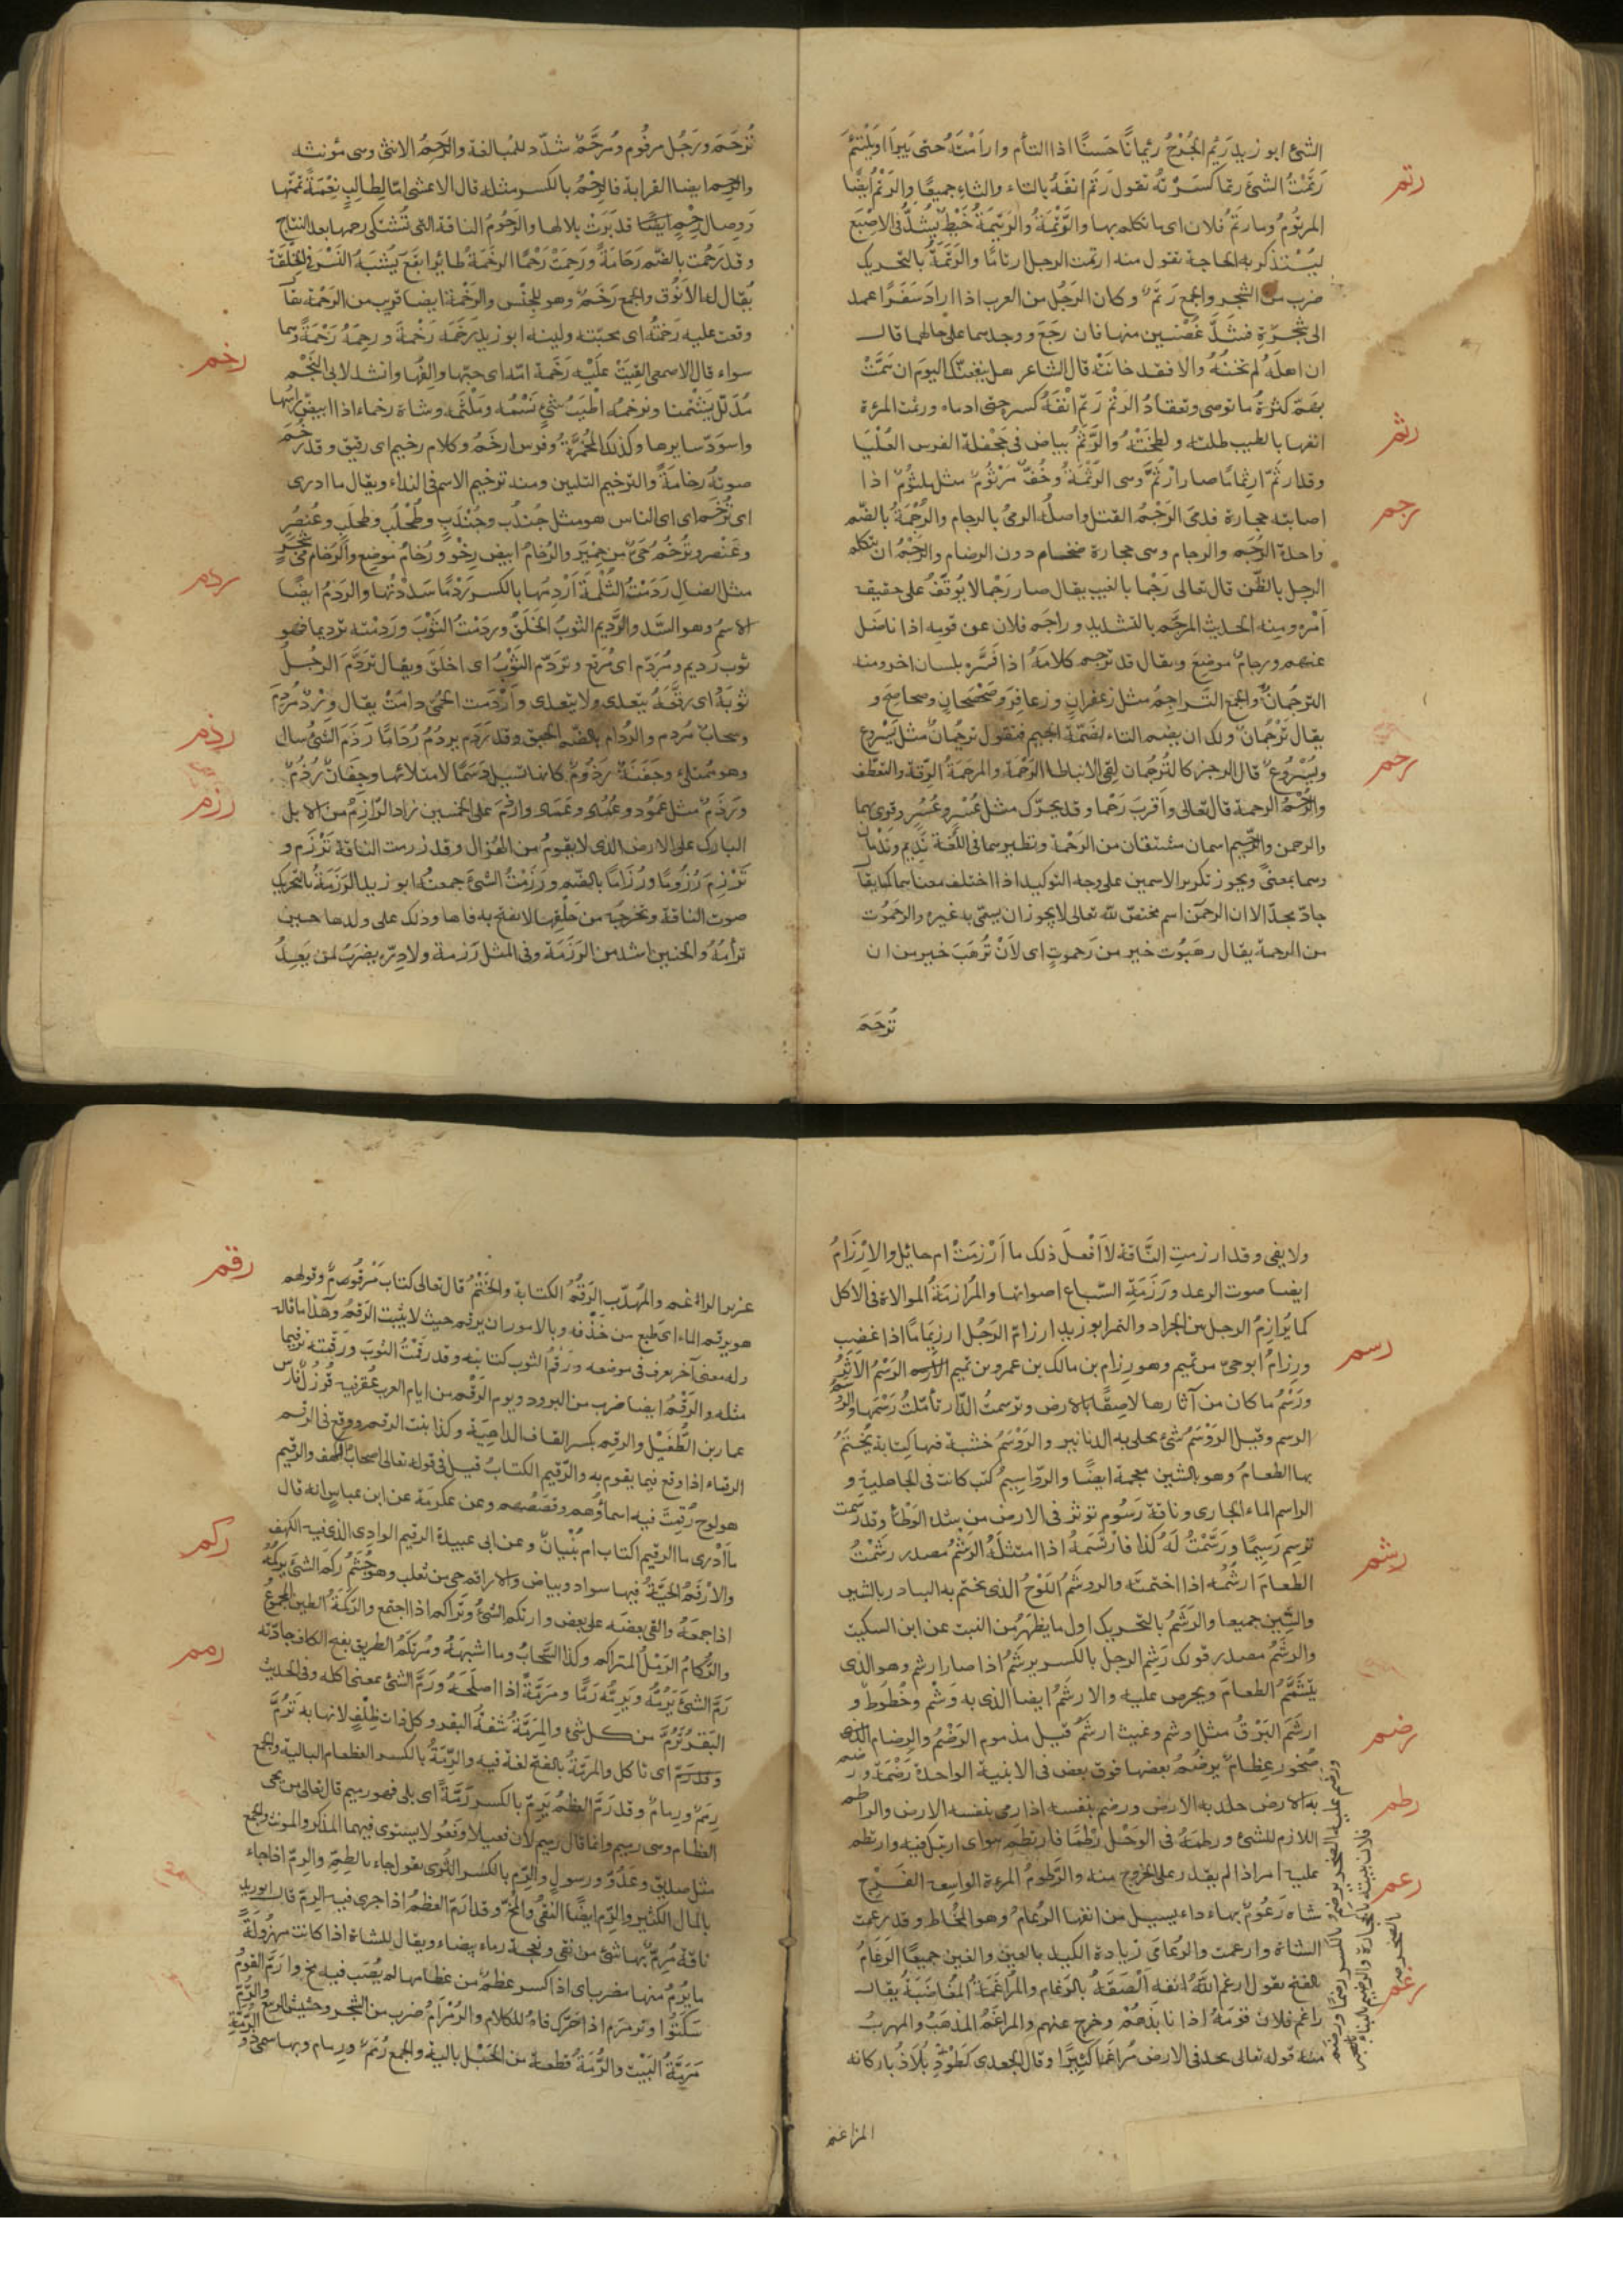 الشئ ابو زيد رَئِمَ الجُرْحُ رئمانًا حَسَنًا اذا التأم وارأمْتُهُ حتى يَبرأ او يلتئمَ
رتم
رَتَمْتُ الشئَ رتما كسرْتُه تقول رَتَم انفَهُ بالتاء والثاء جميعًا والرَتْمُ ايضًا
المرتُوم وما رتم فلان اى ما تكلم بها والرَّتْمَةُ والرَتيمَةُ خَيْط يُشدُّ فى الاصْبَع
ليُسْتذكر به الحاجة تقول منه ارتمت الرجل ارتامًا والرَتَمَةُ بالتحريك
ضرب من الشجر والجمع رَتَمٌ وكان الرَجُل من العرب اذا ارادَ سَفَرًا عمد
الى شجرَةٍ فشَدَّ غُصْنَين منها فان رجَعَ ووجدهما على حالهما قال
ان اهلَهُ لم تخنْهُ والا فقد خانَتْه قال الشاعر هل ينفعنك اليوم ان همَّتْ
رثم
بهمّ كثرةُ ما توصى وتعقادُ الرتْم رَثَم انْفَهُ كسره حتى ادماه ورثمت المرءة
انفها بالطيب طلته ولطخَتْهُ والرَّثَمُ بياض فى جَحْفلة الفرس العُلْيَا
وقد ارثمّ ارثِمامًا صار ارْثَم وهى الرُثْمَةُ وخُفّ مَرْثُومٌ مثل ملثُومٌ اذا
رجم
اصابته حجارة فدَمى الرَجْمُ القتل واصلُه الرمىُ بالرجام والرُجْمَةُ بالضم
واحدة الرُجَم والرجام وهى حجارة ضخام دون الرضام والرَجْمُ ان يتكلم
الرجل بالظن قال تعالى رَجْما بالغيب يقال صار رَجْما لا يُوقَفُ على حقيقة
امْره ومنه الحديث المرجّم بالتشديد وراجَم فلان عن قومه اذا ناضل
عنهم ورجامٌ موضع ويقال قد ترجم كلامَهُ اذا فَسَّره بلسان اخر ومنه
الترجمَانُ والجمع التراجِمُ مثل زعفران وزعافِر وصَحْصحان وصحاصح و
يقال تَرْجُمانٌ ولك ان يضم التاء لضَمّة الجيم فتقول تُرجُمانٌ مثل يَسْروع
رحم
ويُسْروعٌ قال الرجز كالتُرجُمان لقى الانباطا الرَحْمَة والمرحَمةُ الرِقة والتعطّف
والرُحْمُ الرحمة قال تعالى واقربَ رُحْما وقد يحرّك مثل عُسْرٍ وعُسُر وقوى بهما
والرحمن والرحيم اسمان مشتقان من الرَحْمة ونظيرهما فى اللُّغة نَدِيم ونَدْمان
وهما بمعنىً ويجوز تكرير الاسمين على وجه التوكيد اذا اختلف معناهما كما يقا
جادّ مجدّ الا ان الرحمن اسم مختصّ لله تعالى لا يجوز ان يسمّى به غيره والرحَمُوت
من الرحمة يقال رهَبُوت خير من رَحموتٍ اى لأنْ تُرهَبَ خير من ان
تُرْحَمَ
تُرْحَمَ ورَجُل مرحُوم ومُرحَّمٌ شدّد للمُبالغة والرَحِمُ الانثى وهى مؤنثه
والرحِم ايضا القرابة فالرِحْمُ بالكسر مثله قال الاعشى امّا لطالِبٍ نِعْمَةٍ تمّمْتَها
ووصال رِحْمٍ قد بَرَدْتَ بلالها والرَحُومُ الناقة التى تُشتكى رحمها بعد النتاج
وقد رَحُمت بالضم رَحَامَةً ورَحِمَتْ رَحْمًا الرخَمَة طائر ابقَعَ يُشْبَهُ النَسْرَ فى الخلقَة
يُقال له الأنُوق والجمع رَخَمٌ وهو للجِنْس والرَخْمَةُ ايضا قريب من الرَحْمة يقا
رخم
وقعت عليه رَخمتُهُ اى محبّته ولينه ابو زيد رَخَمَه رَخْمةً ورحمَهُ رَحْمَةً وهما
سواء قال الاصمعى القِيَتْ عَلَيْه رَخَمةُ امّه اى حبّها والفُها وانشد لابى النَجْم
مُدَلّل يَشْتُمنا ونرخمُه اطْيَبُ شئٍ نسْمُه ومَلْثَمُه وشاة رخماء اذا ابيضّ راسُها
واسوَدّ سايرها وكذلك المخمَّرة وفرس ارخَمُ وكلام رخيم اى رقيق وقد رَخُمَ
صوتهُ رخامَةً والترخيم التليين ومنه ترخيم الاسم فى النداء ويقال ما ادرى
اىّ تُرْخَمٍ اى اىّ الناس هو مثل جُندُب وجُنْدَب وطُحْلُب وطُحلَب وعُنصُر
وعُنْصَر وتُرْخُم حَىٌّ من حِمْيَر والرُخامُ ابيض رِخْوٌ ورُخَامُ موضع والرُخامى شجر
ردم
مثل الضال رَدَمْتُ الثُلْمَةَ اَرْدِمُها بالكسر رَدْمًا سَدَدْتُها والرَدْمُ ايضًا
الاسْمُ وهو السَّد والرَّديم الثوبُ الخَلَقُ وردَمْتُ الثَوْبَ وردَّمْتُه ترديما فهو
ثوب رَديم ومُرَدّم اى مُرَقّع وتردّم الثَوْبُ اى اخلَقَ ويقال تردَّمَ الرجُلُ
ثَوْبَهُ اى رقّعَهُ يتعدى ولا يتعدى وأرْدَمت الحُمّى دامَتْ يقال وِرْدٌ مُرْدِمٌ
رذم
وسحابٌ مُردم والرُدَام بالضم الحبق وقد رَدَم يردُمُ رُدَامًا رَذَمَ الشئُ سال
وهو ممتلئ وجَفْنَةٌ رَذُومٌ كانها تسيل دَسَمًا لامتلائها وجِفَانٌ رُذُمٌ
رزم
ورَذَمٌ مثل عَمُود وعُمُدٍ وعَمَدٍ وارذمَ على الخمسين زاد الرَّازِمُ من الابل
البارك على الارض الذى لا يقومُ من الهُزال وقد رزمت الناقة تَرْزُم و
تَرْزِمَ رُزُومًا ورُزَامًا بالضم ورَزَمْتُ الشئَ جمعتُه ابو زيد الرَزَمَةُ بالتحريك
صوت الناقة وتخرجه من حَلْقِها لا تفتح به فاها وذلك على ولدها حين
ترأمُهُ والحنين اشد من الرَزَمَة وفى المثل رَزمة ولا دِرّه يضربُ لمن يَعِدُ
ولا يفى وقد ارزمتِ النَّاقة لا اَفْعلَ ذلك ما اَرْزمَتْ ام حائل والارْزَامُ
ايضا صوت الرعد ورَزَمَة السّباع اصواتها والمُرَازمَةُ الموالاة فى الاكل
كما يُرازِمُ الرجل من الجراد والتمر ابو زيد ارزامّ الرَجُل ارزِيمَامًا اذا غضِب
رسم
ورِزامٌ ابو حىّ من تميم وهو رزام بن مالك بن عمرو بن تميم الرَسْمُ الاَثَرُ
ورَسْمُ ما كان من آثارها لاصِقًا بالارض وترسمتُ الدَّار تأمّلتُ رَسْمَها والرَوْسَمُ
الرسم وقيل الرَوْسَمُ شئ يجلى به الدنانير والرَوْسَمُ خشبة فيها كِتَابة يُخْتَمُ
بها الطعامُ وهو بالشين معجمة ايضًا والرَّوَاسِيمُ كتب كانت فى الجاهلية و
الراسم الماء الجارى وناقة رَسُوم تؤثر فى الارض من شدة الوَطْأ وقد رسمت
رشم
ترسِم رَسِيمًا ورَسَّمْتُ لَهُ كذا فارتَسَمَهُ اذا امتثلَهُ الرَشْمُ مصدر رشَمْتُ
الطعامَ ارشُمُه اذا اختمتَه والروشَمُ اللَوْحُ الذى تختم به البيادر بالشين
والسِّين جميعا والرَشَمُ بالتحريك اول ما يظهَرُ من النبت عن ابن السكيت
والرشَمُ مصدر قولك رَشِم الرجل بالكسر يرشَمُ اذا صار ارشم وهو الذى
يتشَمَّمُ الطعامَ ويحرص عليه والارشَمُ ايضا الذى به وَشْم وخُطُوط و
رضم
ارشَمَ البَرْقُ مثل اوشم وغيث ارشَمُ قيل مذموم الرَضْمُ والرِضام
صُخور عِظامٌ يرضَمُ بعضها فوق بعض فى الابنية الواحدة رَضْمَة ورضم
رطم
به الارض جلد به الارض ورضم بنفسه اذا رمى بنفسه الارض والراطم
اللازم للشئ ورطمتُه فى الوَحْل رَطْمًا فارتطَم هو اى ارتبك فيه وارتطم
رعم
عليه امر اذا لم يقدر على الخروج منه والرَّطُومُ المرءة الواسعة الفَرْج
شاة رَعُومٌ بهاء داء يسيل من انفها الرُعامُ وهو المُخاط وقد رعمت
الشاة وارعمت والرُعَامَى زيادة الكبد بالعين والغين جميعًا الرَغَامُ
رغم
بالفتح تقول ارغم اللَّهُ انفه الْصَقَهُ بالرَغام والمُراغَمَةُ المُغَاضَبَةُ يقال
راغم فلان قومَهُ اذا نابذَهُمْ وخرج عنهم والمراغَمُ المذهَبُ والمهربُ
منه قوله تعالى يجد فى الارض مُراغَمًا كثِيرًا وقال الجعدى كَطَوْدٍ يُلَاذُ باركانه
المراغم
رقم
عزيز المراغم والمُهدّب الرَقْمُ الكتابة والخَتْمُ قال تعالى كتاب مَرقُومٌ وقولهم
هو يرقم الماء اى بلغ من حَذْقه بالامور ان يرقم حيث لا يثبت الرَقم وهذا ما قاله
وله معنى آخر يعرف فى موضعه ورَقْمُ الثوب كتابته وقد رَقَمْتُ الثوبَ ورَقّمته ترقيما
مثله والرَقْمُ ايضا ضرب من البرود ويوم الرَقْم من ايام العرب عُقر فيه قُرزُل فَرَسُ
عامر بن الطُفَيْل والرقِم بكسر القاف الداهِيَة وكذا بنت الرقِم ووقع فى الرقم
الرقماء اذا وقع فيما يقوم به والرَّقيم الكتابُ قيل فى قوله تعالى اصحاب الكهف والرقيم
هو لوح رُقِمَتْ فيه اسماؤُهم وقصَصهم وعن عكرمَة عن ابن عباس انه قال
ما اَدْرى ما الرقيم اكتاب ام بُنْيانٌ وعن ابى عبيدة الرقيم الوادى الذى فيه الكهف
ركم
والارْقَمُ الحَيَّةُ فيها سواد وبياض والاراقم حى من تغلب وهو جُشَمُ ركَمَ الشئَ يركُمُه
اذا جمعَهُ والقى بعضَه على بعض وارتكم الشئُ وتَراكم اذا اجتمع والرُكْمَةُ الطين المجموعُ
والرُكَامُ الرَمْلُ المتراكم وكذا السَّحابُ وما اشبهَهُ ومُرتكَمُ الطريق بفتح الكاف جادّته
رمم
رَمَّ الشئَ يَرُمُّهُ ويَرِمُّه رَمًّا ومَرَمَّةً اذا اصلَحَهُ ورَمَّ الشئَ بمعنى اكله وفى الحديث
البَقَرُ تَرُمُّ من كل شئ والمِرَمَّةُ شفةُ البقر وكل ذات ظِلْف لانها به تَرُمُّ
اى تاكل والمَرَمَّةُ بالفتح لغة فيه والرِّمَّةُ بالكسر العظام البالية والجمع
رِمَمٌ ورِمامٌ وقد رَمَّ العظمُ يَرِمّ بالكسر رِمَّةً اى بلى فهو رميم قال تعالى من يحى
العظام وهى رميم وانما قال رميم لأن فعيلا وفَعُولا يستوى فيهما المذكر والمونث والجمع
مثل صديق وعَدُوّ ورسول والرِّمّ بالكسر الثَرى يقول جاء بالطِمّ والرِمّ اذا جاء
بالمال الكثير والرِّم ايضًا النقىُ والمُخّ وقد ارَمّ العظمُ اذا جرى فيه الرِمّ قال ابوزيد
ناقة مُرِمٌّ بها شئ من نقى ونعجة رماء بيضاء ويقال للشاة اذا كانت مهزُولَةً
ما يُرِمُّ منها مَضرب اى اذا كسر عظمٌ من عظامها لم يُصَب فيه مخ وارَمَّ القومُ
سَكَتُوا وترمرَم اذا حَرّك فاهُ للكلام والرُمْرَامُ ضرب من الشجر وحشيش الربيع والرَّمُّ
مَرَمَّةُ البَيْت والرُّمَّةُ قطعة من الحَبْل بالية والجمع رُمَمٌ ورِمام وبها سمى ذو الرُمَّةِ